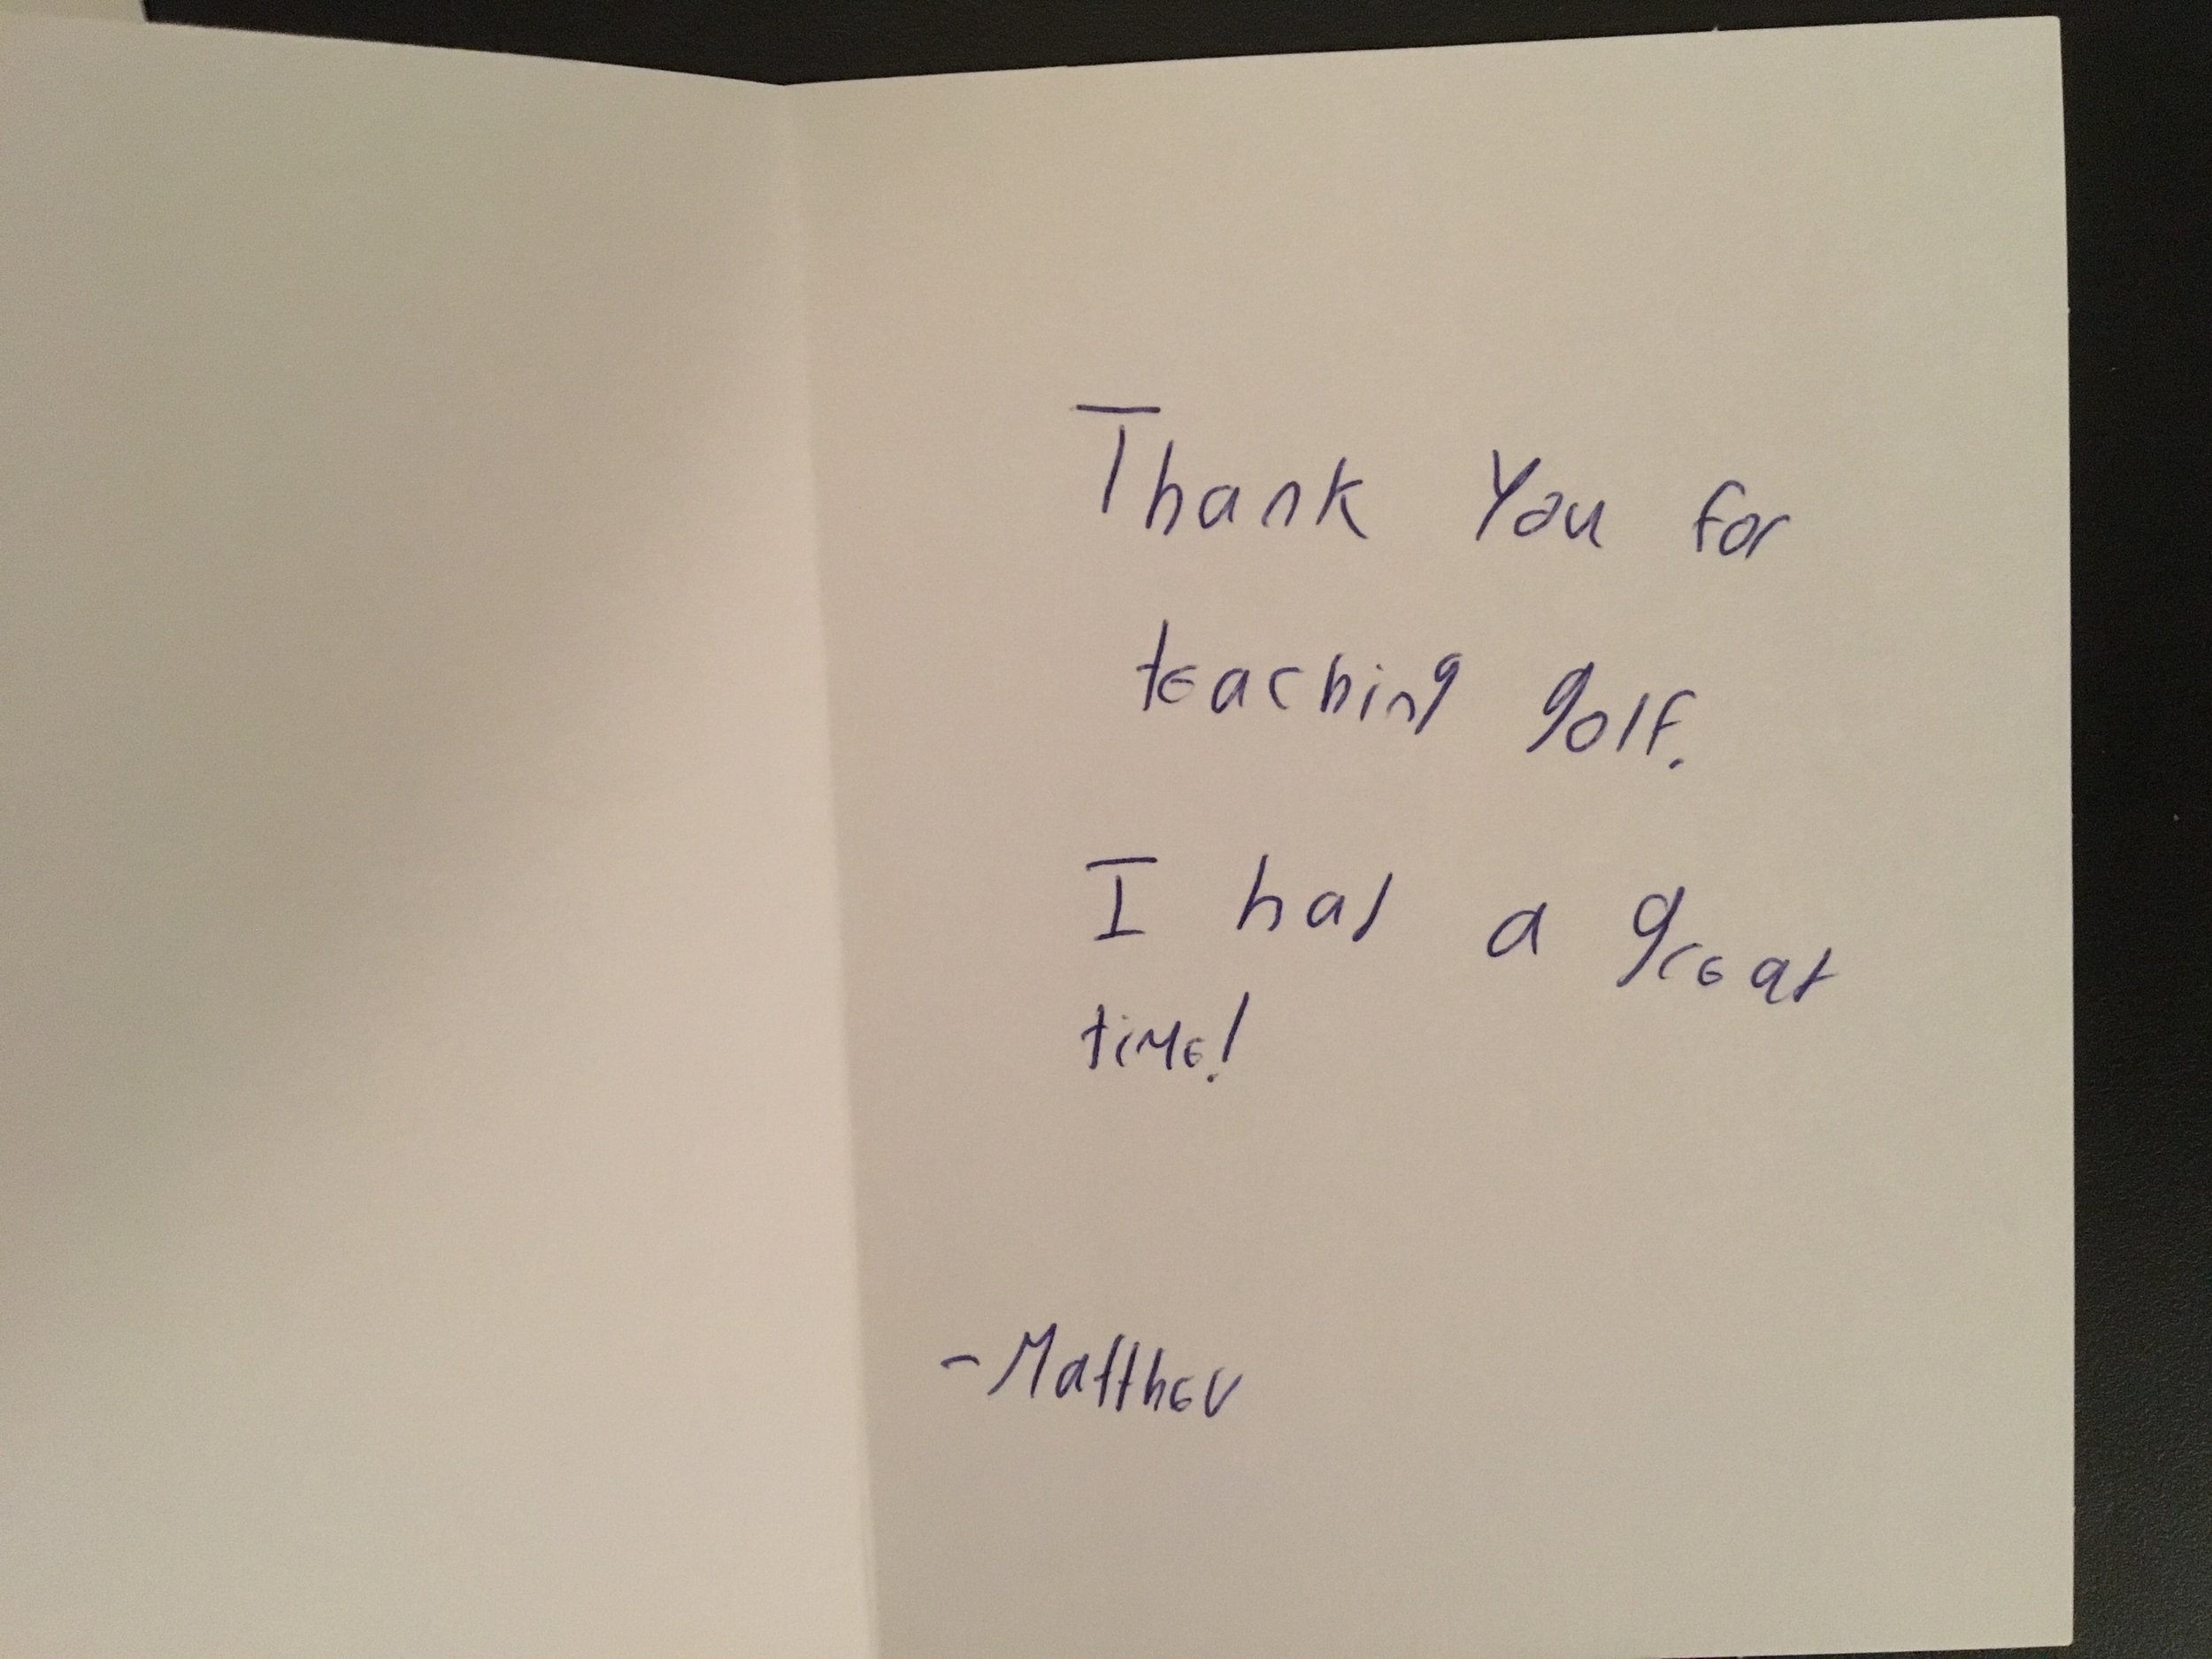 Thank You for
teaching golf.
I had a great
time!
-Matthew